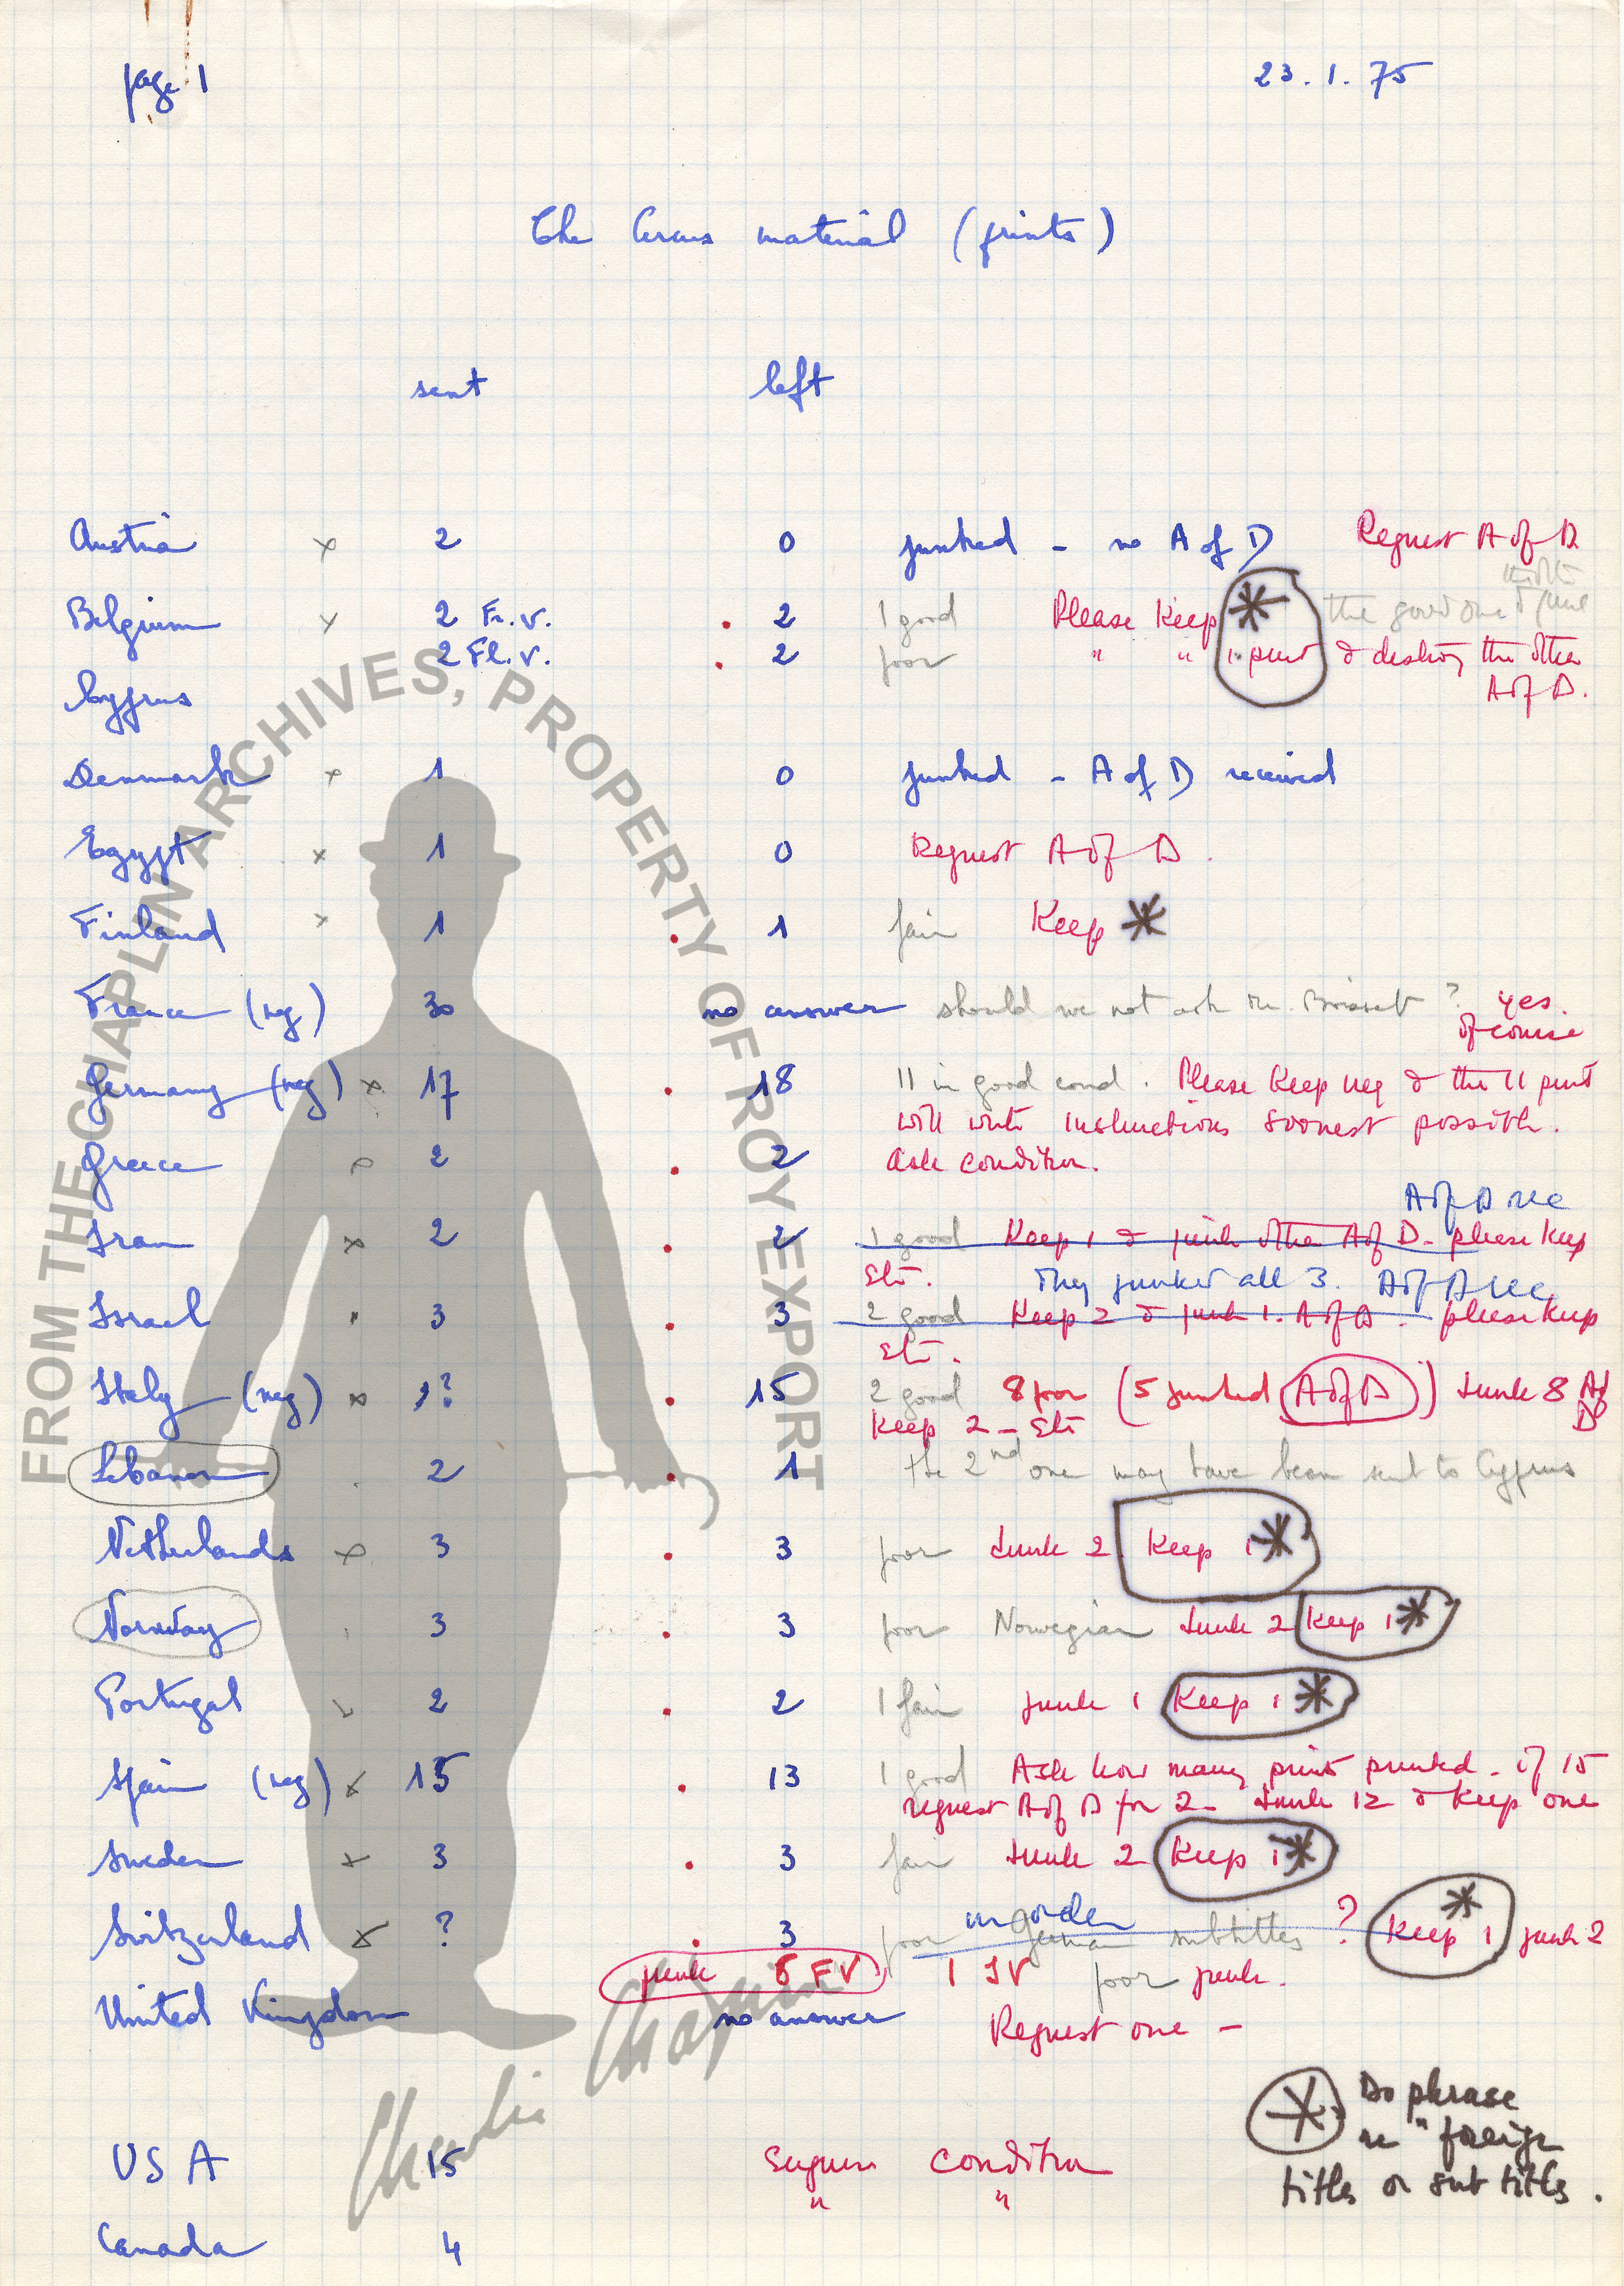 page 1
23.1.75
The Circus material (prints)
sent left
Austria x 2 0 junked - no A of D Request A of D.
Belgium x 2 Fr. v. . 2 1 good Please Keep * the good one & junk
2 Fl. v. . 2 poor " " 1 print & destroy the other
A of D.
Cyprus
Denmark x 1 0 junked - A of D received
Egypt x 1 0 Request A of D.
Finland x 1 . 1 fair Keep *
France (neg) 30 no answer should we not ask Mr. ? yes.
of course
Germany (neg) x 17 . 18 11 in good cond. Please Keep neg & the 11 print
will write instructions soonest possible.
Greece 2 . 2 ask condition.
A of D rec
Iran x 2 . 2 1 good Keep 1 & junk other A of D - please keep
etc. They junked all 3. A of D rec.
Israel 3 . 3 2 good Keep 2 & junk 1. A of D. please keep
etc.
Italy (neg) x 1? . 15 2 good 8 poor (5 junked A of D) Junk 8 A of D
Keep 2 - etc
Lebanon . 2 . 1 the 2nd one may have been sent to Cyprus
Netherlands x 3 . 3 poor Junk 2 Keep 1 *
Norway 3 . 3 poor Norwegian Junk 2 Keep 1 *
Portugal 2 . 2 1 fair junk 1 Keep 1 *
Spain (neg) x 15 . 13 1 good Ask how many prints printed - if 15
request A of D for 2 - Junk 12 & Keep one
Sweden x 3 . 3 fair Junk 2 Keep 1 *
Switzerland x ? . 3 poor in order German subtitles ? Keep 1 * junk 2
junk 5 FV 1 IV poor junk.
United Kingdom no answer Request one -
* Do phrase
re "foreign
titles or sub titles.
USA 15 Enquire condition
" "
Canada 4
FROM THE CHAPLIN ARCHIVES, PROPERTY OF ROY EXPORT
Charlie Chaplin